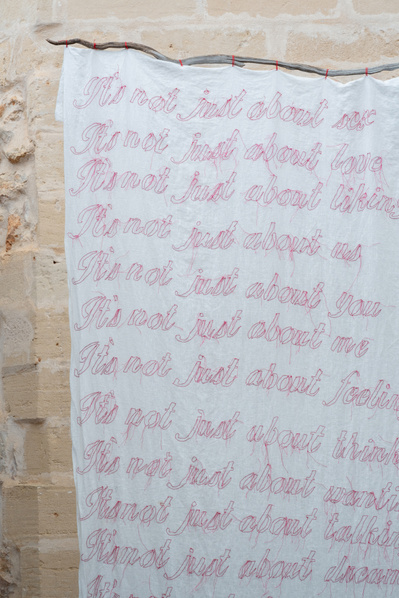 It's not just about sex
It's not just about love
It's not just about liking
It's not just about us
It's not just about you
It's not just about me
It's not just about feelin
It's not just about think
It's not just about wanti
It's not just about talkin
It's not just about dream
It's not just about